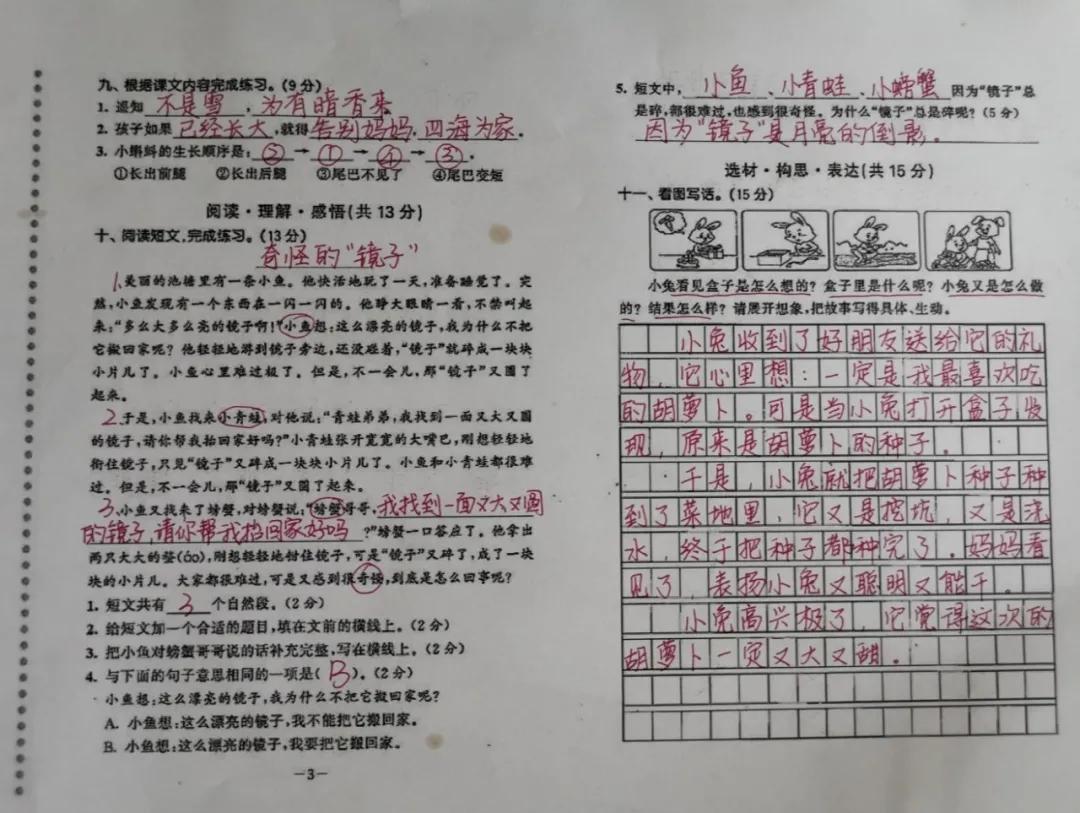 九、根据课文内容完成练习。(9分)
1. 遥知 不是雪 , 为有暗香来 。
2. 孩子如果 已经长大 ,就得 告别妈妈,四海为家 。
3. 小蝌蚪的生长顺序是: ② → ① → ④ → ③ 。
①长出前腿 ②长出后腿 ③尾巴不见了 ④尾巴变短
阅读·理解·感悟(共13分)
十、阅读短文,完成练习。(13分)
奇怪的“镜子”
1.美丽的池塘里有一条小鱼。他快活地玩了一天,准备睡觉了。突
然,小鱼发现有一个东西在一闪一闪的。他睁大眼睛一看,不禁叫起
来:“多么大多么亮的镜子啊!”小鱼想:这么漂亮的镜子,我为什么不把
它搬回家呢?他轻轻地游到镜子旁边,还没碰着,“镜子”就碎成一块块
小片儿了。小鱼心里难过极了。但是,不一会儿,那“镜子”又圆了
起来。
2.于是,小鱼找来小青蛙,对他说:“青蛙弟弟,我找到一面又大又圆
的镜子,请你帮我抬回家好吗?”小青蛙张开宽宽的大嘴巴,刚想轻轻地
衔住镜子,只见“镜子”又碎成一块块小片儿了。小鱼和小青蛙都很难
过。但是,不一会儿,那“镜子”又圆了起来。
3.小鱼又找来了螃蟹,对螃蟹说:“螃蟹哥哥,我找到一面又大又圆
的镜子,请你帮我抬回家好吗 ?”螃蟹一口答应了。他拿出
两只大大的螯(áo),刚想轻轻地钳住镜子,可是“镜子”又碎了,成了一块
块的小片儿。大家都很难过,可是又感到很奇怪,到底是怎么回事呢?
1. 短文共有 3 个自然段。(2分)
2. 给短文加一个合适的题目,填在文前的横线上。(2分)
3. 把小鱼对螃蟹哥哥说的话补充完整,写在横线上。(2分)
4. 与下面的句子意思相同的一项是( B )。(2分)
小鱼想:这么漂亮的镜子,我为什么不把它搬回家呢?
A. 小鱼想:这么漂亮的镜子,我不能把它搬回家。
B. 小鱼想:这么漂亮的镜子,我要把它搬回家。
—3—
5. 短文中, 小鱼 、 小青蛙 、 小螃蟹 因为“镜子”总
是碎,都很难过,也感到很奇怪。为什么“镜子”总是碎呢?(5分)
因为“镜子”是月亮的倒影。
选材·构思·表达(共15分)
十一、看图写话。(15分)
小兔看见盒子是怎么想的?盒子里是什么呢?小兔又是怎么做
的?结果怎么样?请展开想象,把故事写得具体、生动。
小兔收到了好朋友送给它的礼
物,它心里想:一定是我最喜欢吃
的胡萝卜。可是当小兔打开盒子,发
现,原来是胡萝卜的种子。
于是,小兔就把胡萝卜种子种
到了菜地里,它又是挖坑,又是浇
水,终于把种子都种完了。妈妈看
见了,表扬小兔又聪明又能干。
小兔高兴极了,它觉得这次的
胡萝卜一定又大又甜。